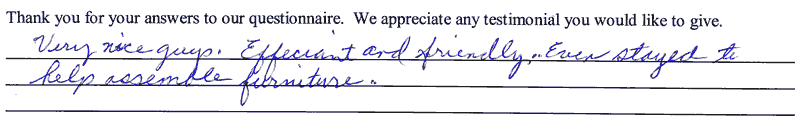 Thank you for your answers to our questionnaire. We appreciate any testimonial you would like to give.
Very nice guys. Effeciant and friendly. Even stayed to
help assemble furniture.